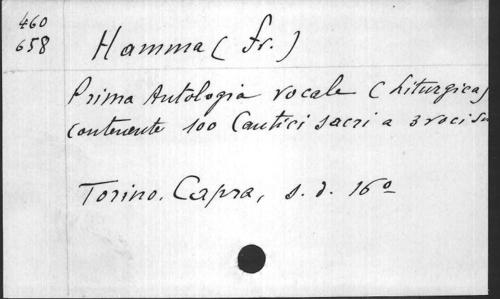 460
658
Hamma (Fr.)
Prima Antologia vocale (Liturgica)
contenente 100 Cantici sacri a 3 voci
Torino. Capra, s. d. 16º